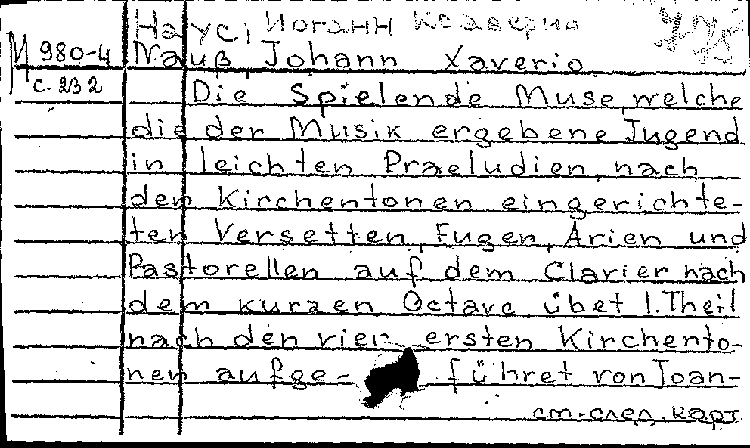 Наус, Иоганн Ксаверио
М 980-4 Nauß, Johann Xaverio
с. 232 Die Spielende Muse, welche
die der Musik ergebene Jugend
in leichten Praeludien, nach
den Kirchentonen eingerichte-
ten Versetten, Fugen, Arien und
Pastorellen auf dem Clavier nach
dem kurzen Octave übet 1. Theil
nach den vier ersten Kirchento-
nen aufge- führet von Joan-
см. след. карт.